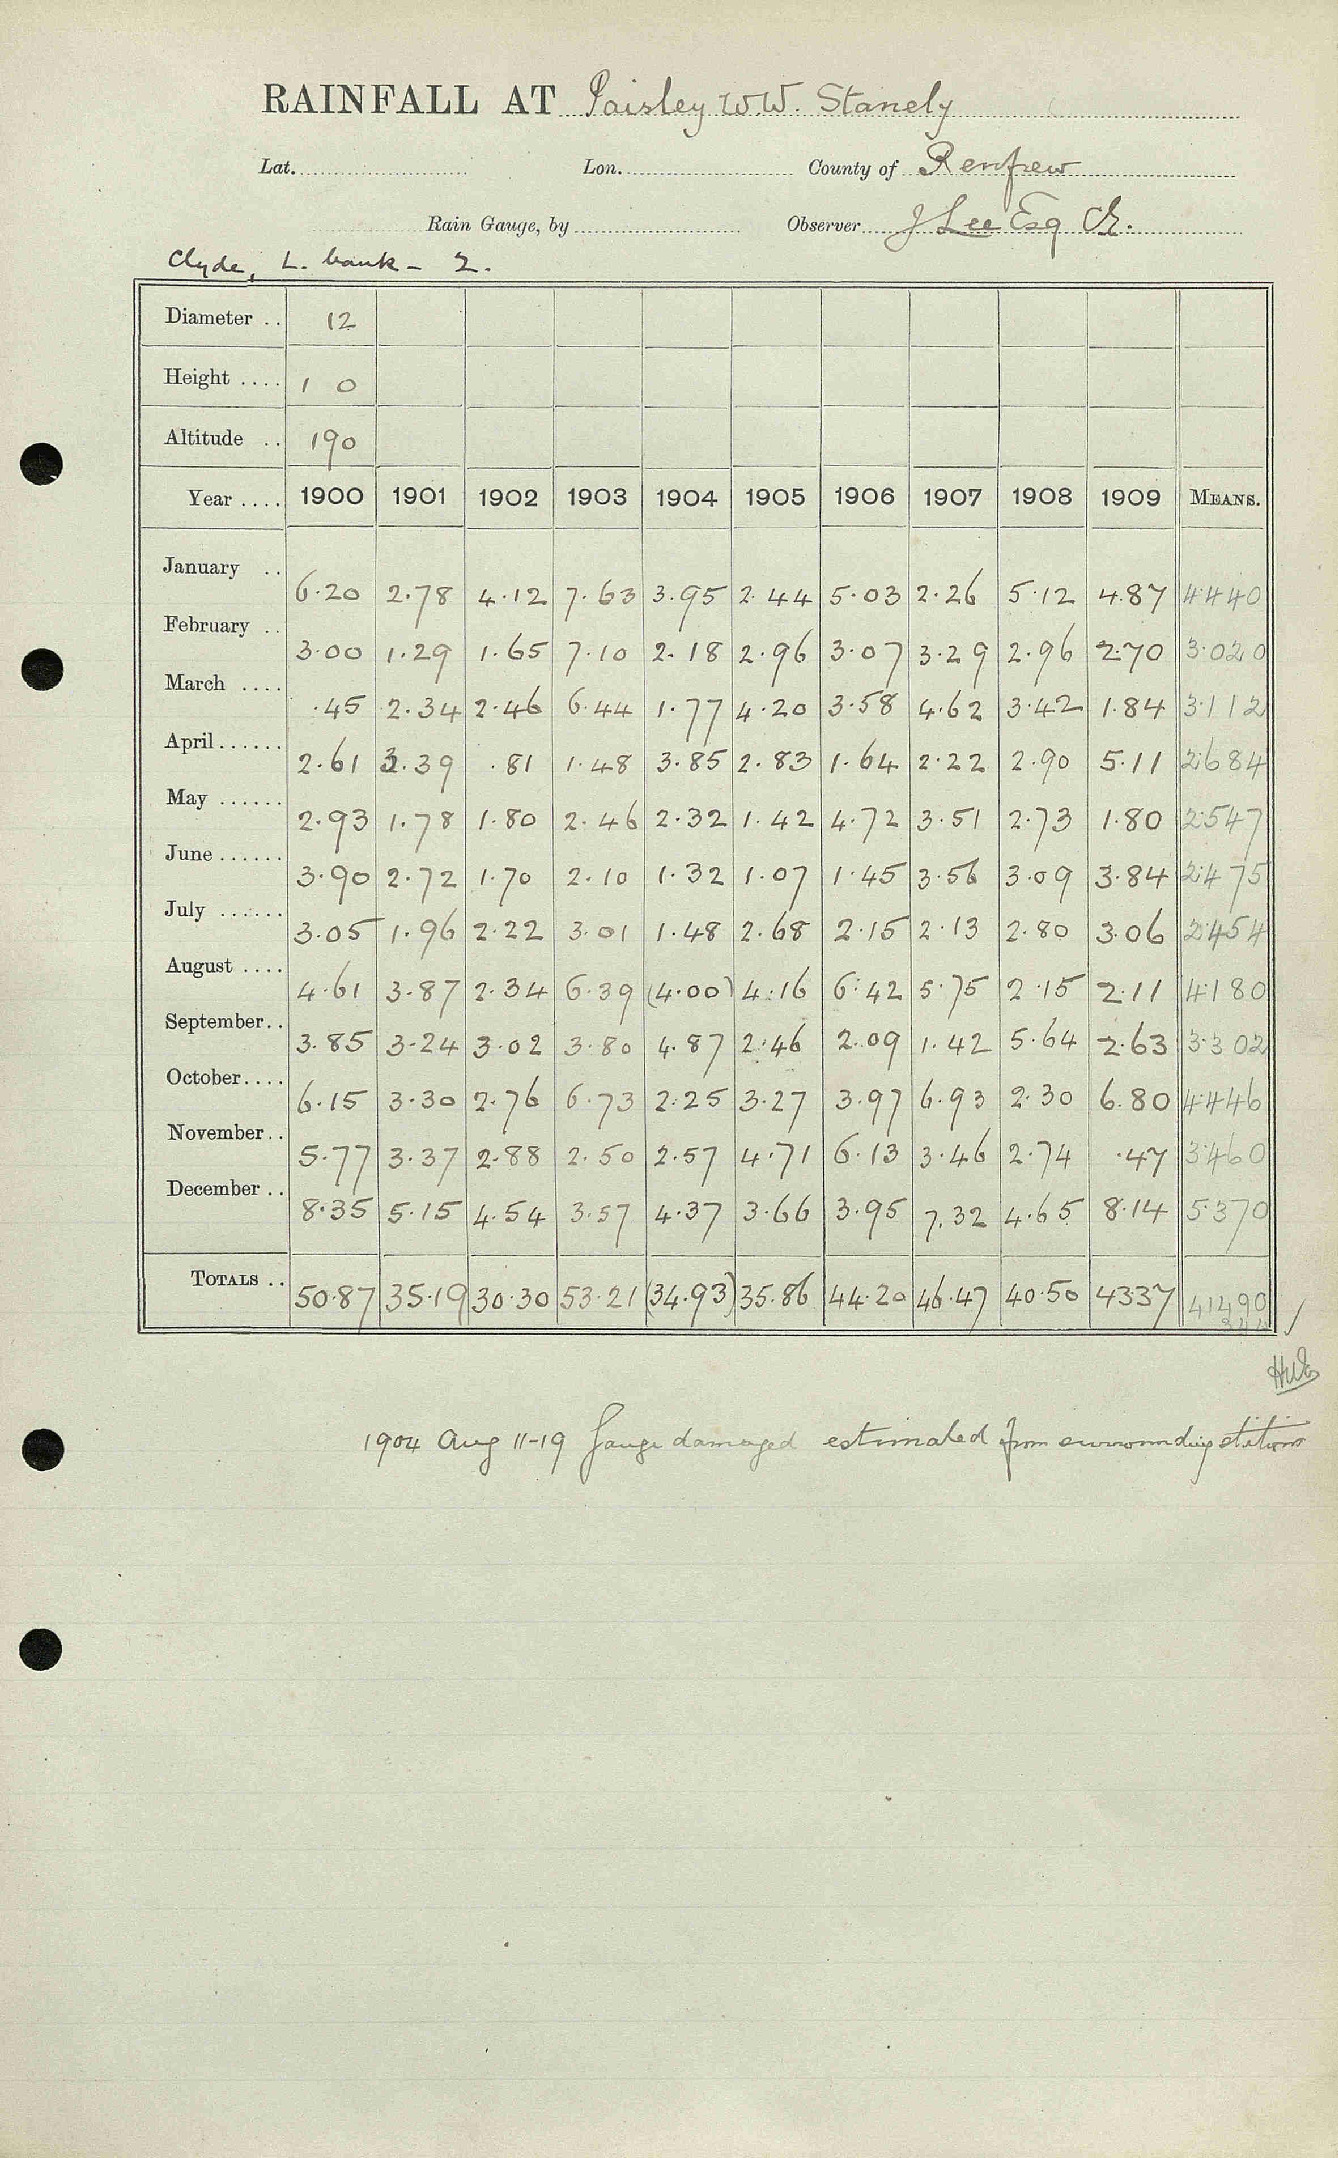 RAINFALL AT Paisley W.W. Stanely
Lat. Lon. County of Renfrew
Rain Gauge, by Observer J Lee Esq CE.
Clyde, L. bank - 2.
Diameter .. 12
Height .... 1 0
Altitude .. 190
Year .... 1900 1901 1902 1903 1904 1905 1906 1907 1908 1909 MEANS.
January .. 6.20 2.78 4.12 7.63 3.95 2.44 5.03 2.26 5.12 4.87 4.440
February .. 3.00 1.29 1.65 7.10 2.18 2.96 3.07 3.29 2.96 2.70 3.020
March .... .45 2.34 2.46 6.44 1.77 4.20 3.58 4.62 3.42 1.84 3.112
April ...... 2.61 3.39 .81 1.48 3.85 2.83 1.64 2.22 2.90 5.11 2.684
May ...... 2.93 1.78 1.80 2.46 2.32 1.42 4.72 3.51 2.73 1.80 2.547
June ...... 3.90 2.72 1.70 2.10 1.32 1.07 1.45 3.56 3.09 3.84 2.475
July ...... 3.05 1.96 2.22 3.01 1.48 2.68 2.15 2.13 2.80 3.06 2.454
August .... 4.61 3.87 2.34 6.39 (4.00) 4.16 6.42 5.75 2.15 2.11 4.180
September .. 3.85 3.24 3.02 3.80 4.87 2.46 2.09 1.42 5.64 2.63 3.302
October .... 6.15 3.30 2.76 6.73 2.25 3.27 3.97 6.93 2.30 6.80 4.446
November .. 5.77 3.37 2.88 2.50 2.57 4.71 6.13 3.46 2.74 .47 3.460
December .. 8.35 5.15 4.54 3.57 4.37 3.66 3.95 7.32 4.65 8.14 5.370
TOTALS .. 50.87 35.19 30.30 53.21 (34.93) 35.86 44.20 46.47 40.50 43.37 41490
1904 Aug 11-19 Gauge damaged estimated from surrounding stations